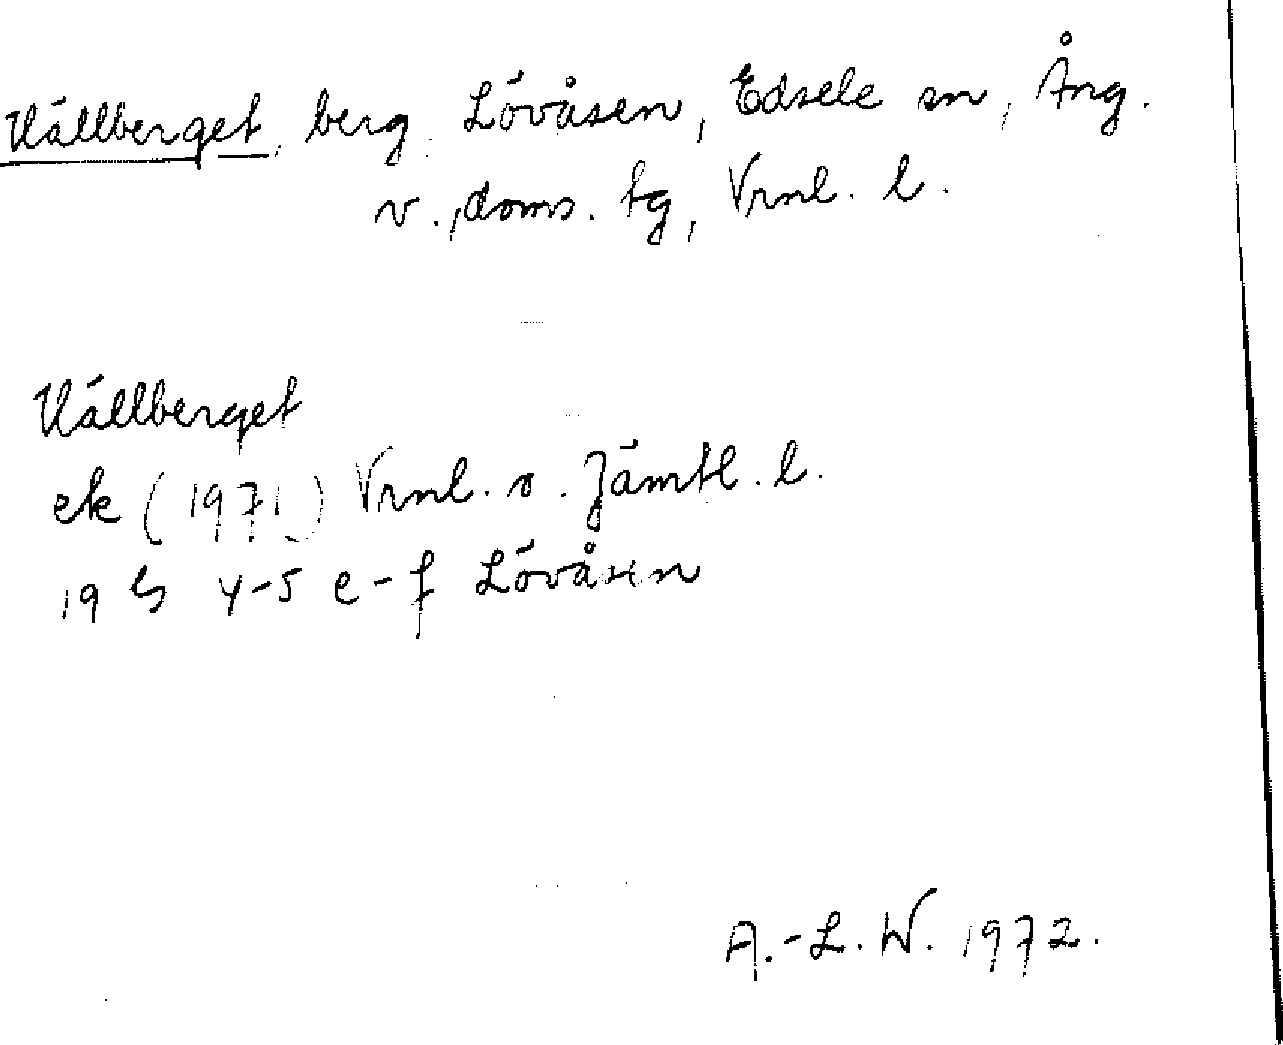 Vällberget, berg. Lövåsen, Edsele sn, Ång.
v., doms. tg, Vrnl. l.
Vällberget
ek (1971) Vrnl. o. Jämtl. l.
19 G 4-5 e-f Lövåsen
A.-L. W. 1972.